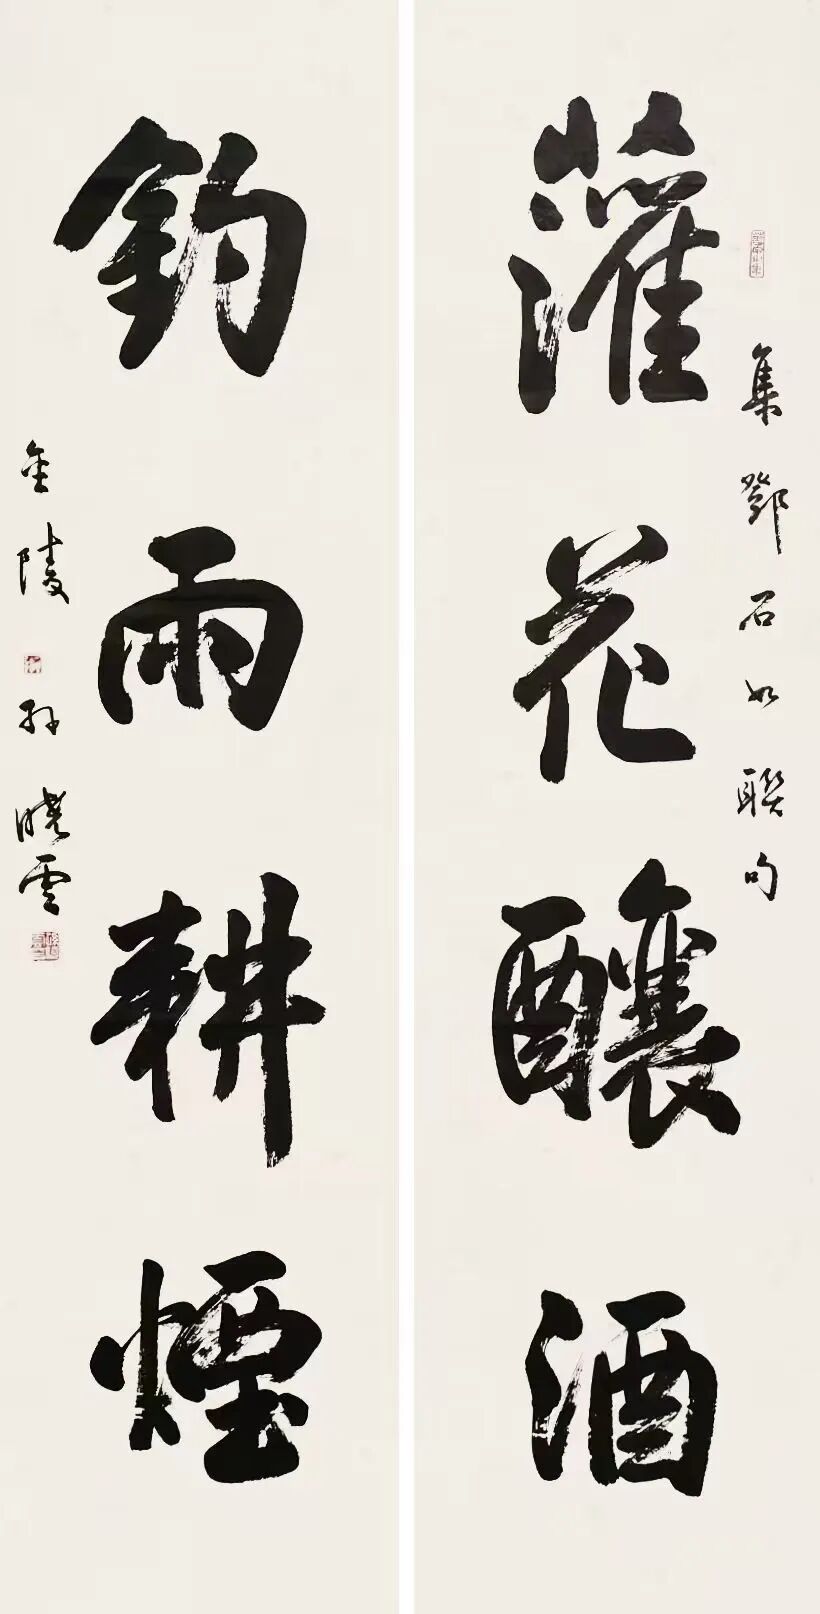 集鄧石如聯句
灌花釀酒
釣雨耕煙
金陵孫曉雲